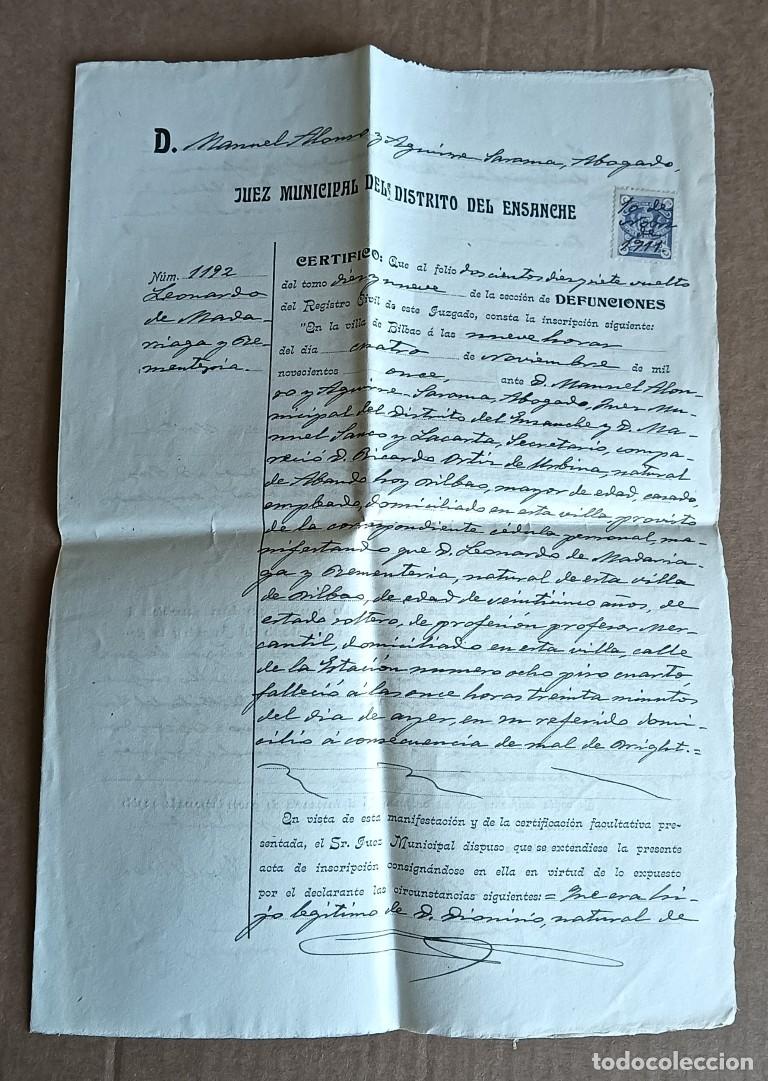 D. Manuel Alonso y Aguirre Sarama, Abogado,
JUEZ MUNICIPAL DEL DISTRITO DEL ENSANCHE
10 de
1911
Núm. 1192
Leonardo
de Mada-
riaga y Re-
mentería.
CERTIFICO: Que al folio doscientos diez y siete vuelto
del tomo diez y nueve de la sección de DEFUNCIONES
del Registro Civil de este Juzgado, consta la inscripción siguiente:
"En la villa de Bilbao á las nueve horas
del día cuatro de Noviembre de mil
novecientos once, ante D. Manuel Alon-
so y Aguirre Sarama, Abogado, Juez Mu-
nicipal del Distrito del Ensanche y D. Ma-
nuel Sanco y Lacarta, Secretario, compa-
reció D. Ricardo Ortiz de Urbina, natural
de Abando hoy Bilbao, mayor de edad, casado,
empleado, domiciliado en esta villa provisto
de la correspondiente cédula personal, ma-
nifestando que D. Leonardo de Madaria-
ga y Rementeria, natural de esta villa
de Bilbao, de edad de veinticinco años, de
estado soltero, de profesión profesor Mer-
cantil, domiciliado en esta villa, calle
de la Estación numero ocho piso cuarto
falleció á las once horas treinta minutos
del dia de ayer, en su referido domi-
cilio á consecuencia de mal de Bright.=
En vista de esta manifestación y de la certificación facultativa pre-
sentada, el Sr. Juez Municipal dispuso que se extendiese la presente
acta de inscripción consignándose en ella en virtud de lo expuesto
por el declarante las circunstancias siguientes:= Que era hi-
jo legítimo de D. Dionisio, natural de
todocoleccion